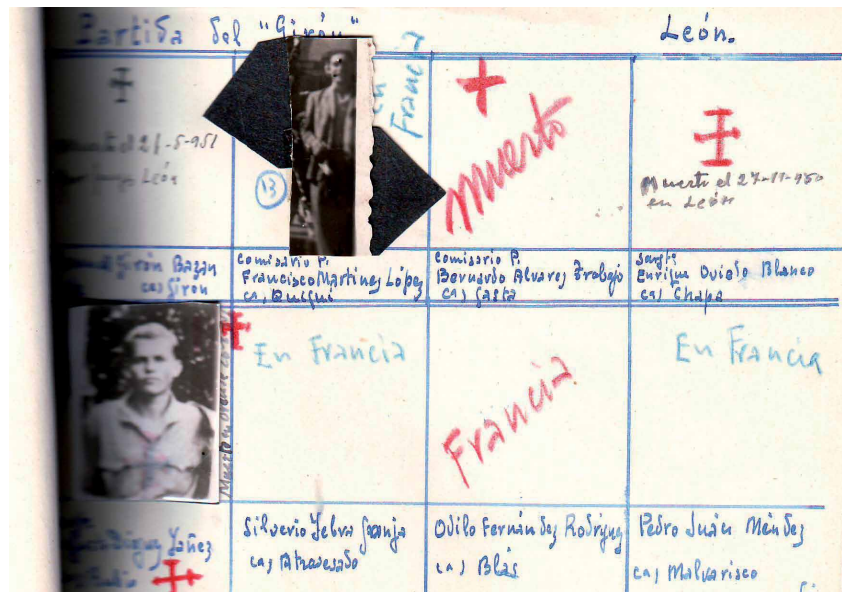 Partida del "Girón"
León.
Muerto el 21-5-951
León
13
en Francia
muerto
Muerto el 27-11-950
en León
Girón Bazan
(a) Giron
Comisario P.
Francisco Martinez López
(a) Quiqui
Comisario P.
Bernardo Alvarez Trobajo
(a) Gasta
Sargto
Enrique Oviedo Blanco
(a) Chapa
Muerto en Orense
En Francia
Francia
En Francia
Rodriguez Yañez
Silverio Yebra Granja
(a) Atravesado
Odilo Fernández Rodriguez
(a) Blás
Pedro Juán Méndez
(a) Malvarisco